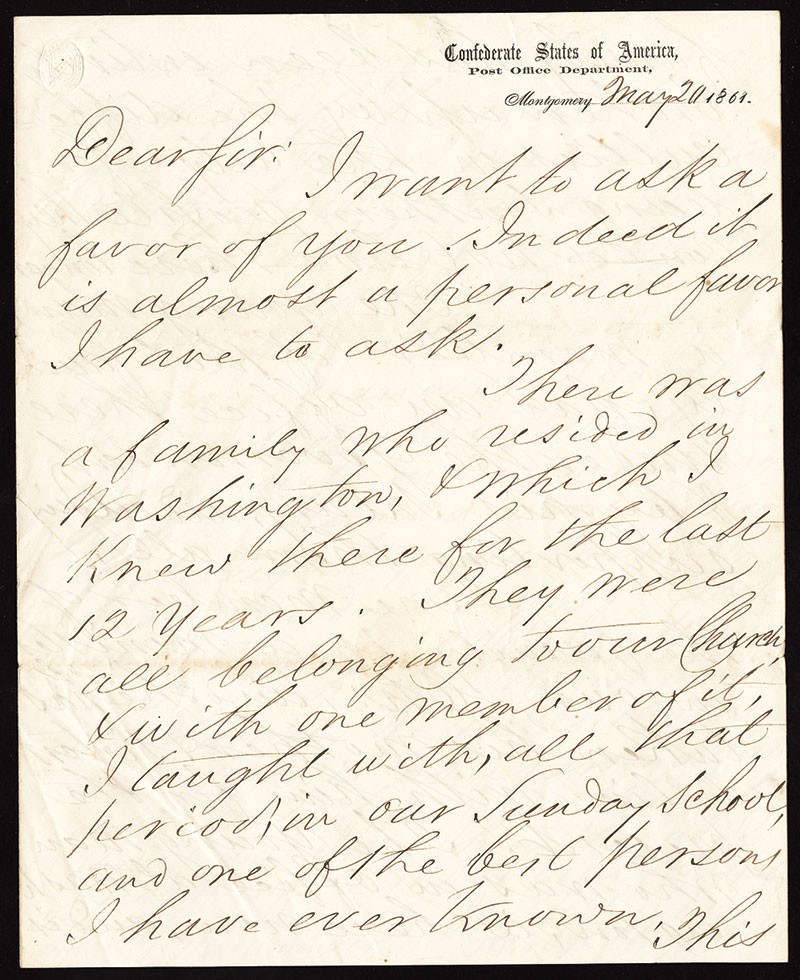 Confederate States of America,
Post Office Department,
Montgomery May 20 1861.
Dear Sir: I want to ask a
favor of you. Indeed it
is almost a personal favor
I have to ask.
There was
a family who resided in
Washington, & which I
Knew there for the last
12 years. They were
all belonging to our Church,
& with one member of it,
I taught with, all that
period, in our Sunday School,
and one of the best persons
I have ever known. This